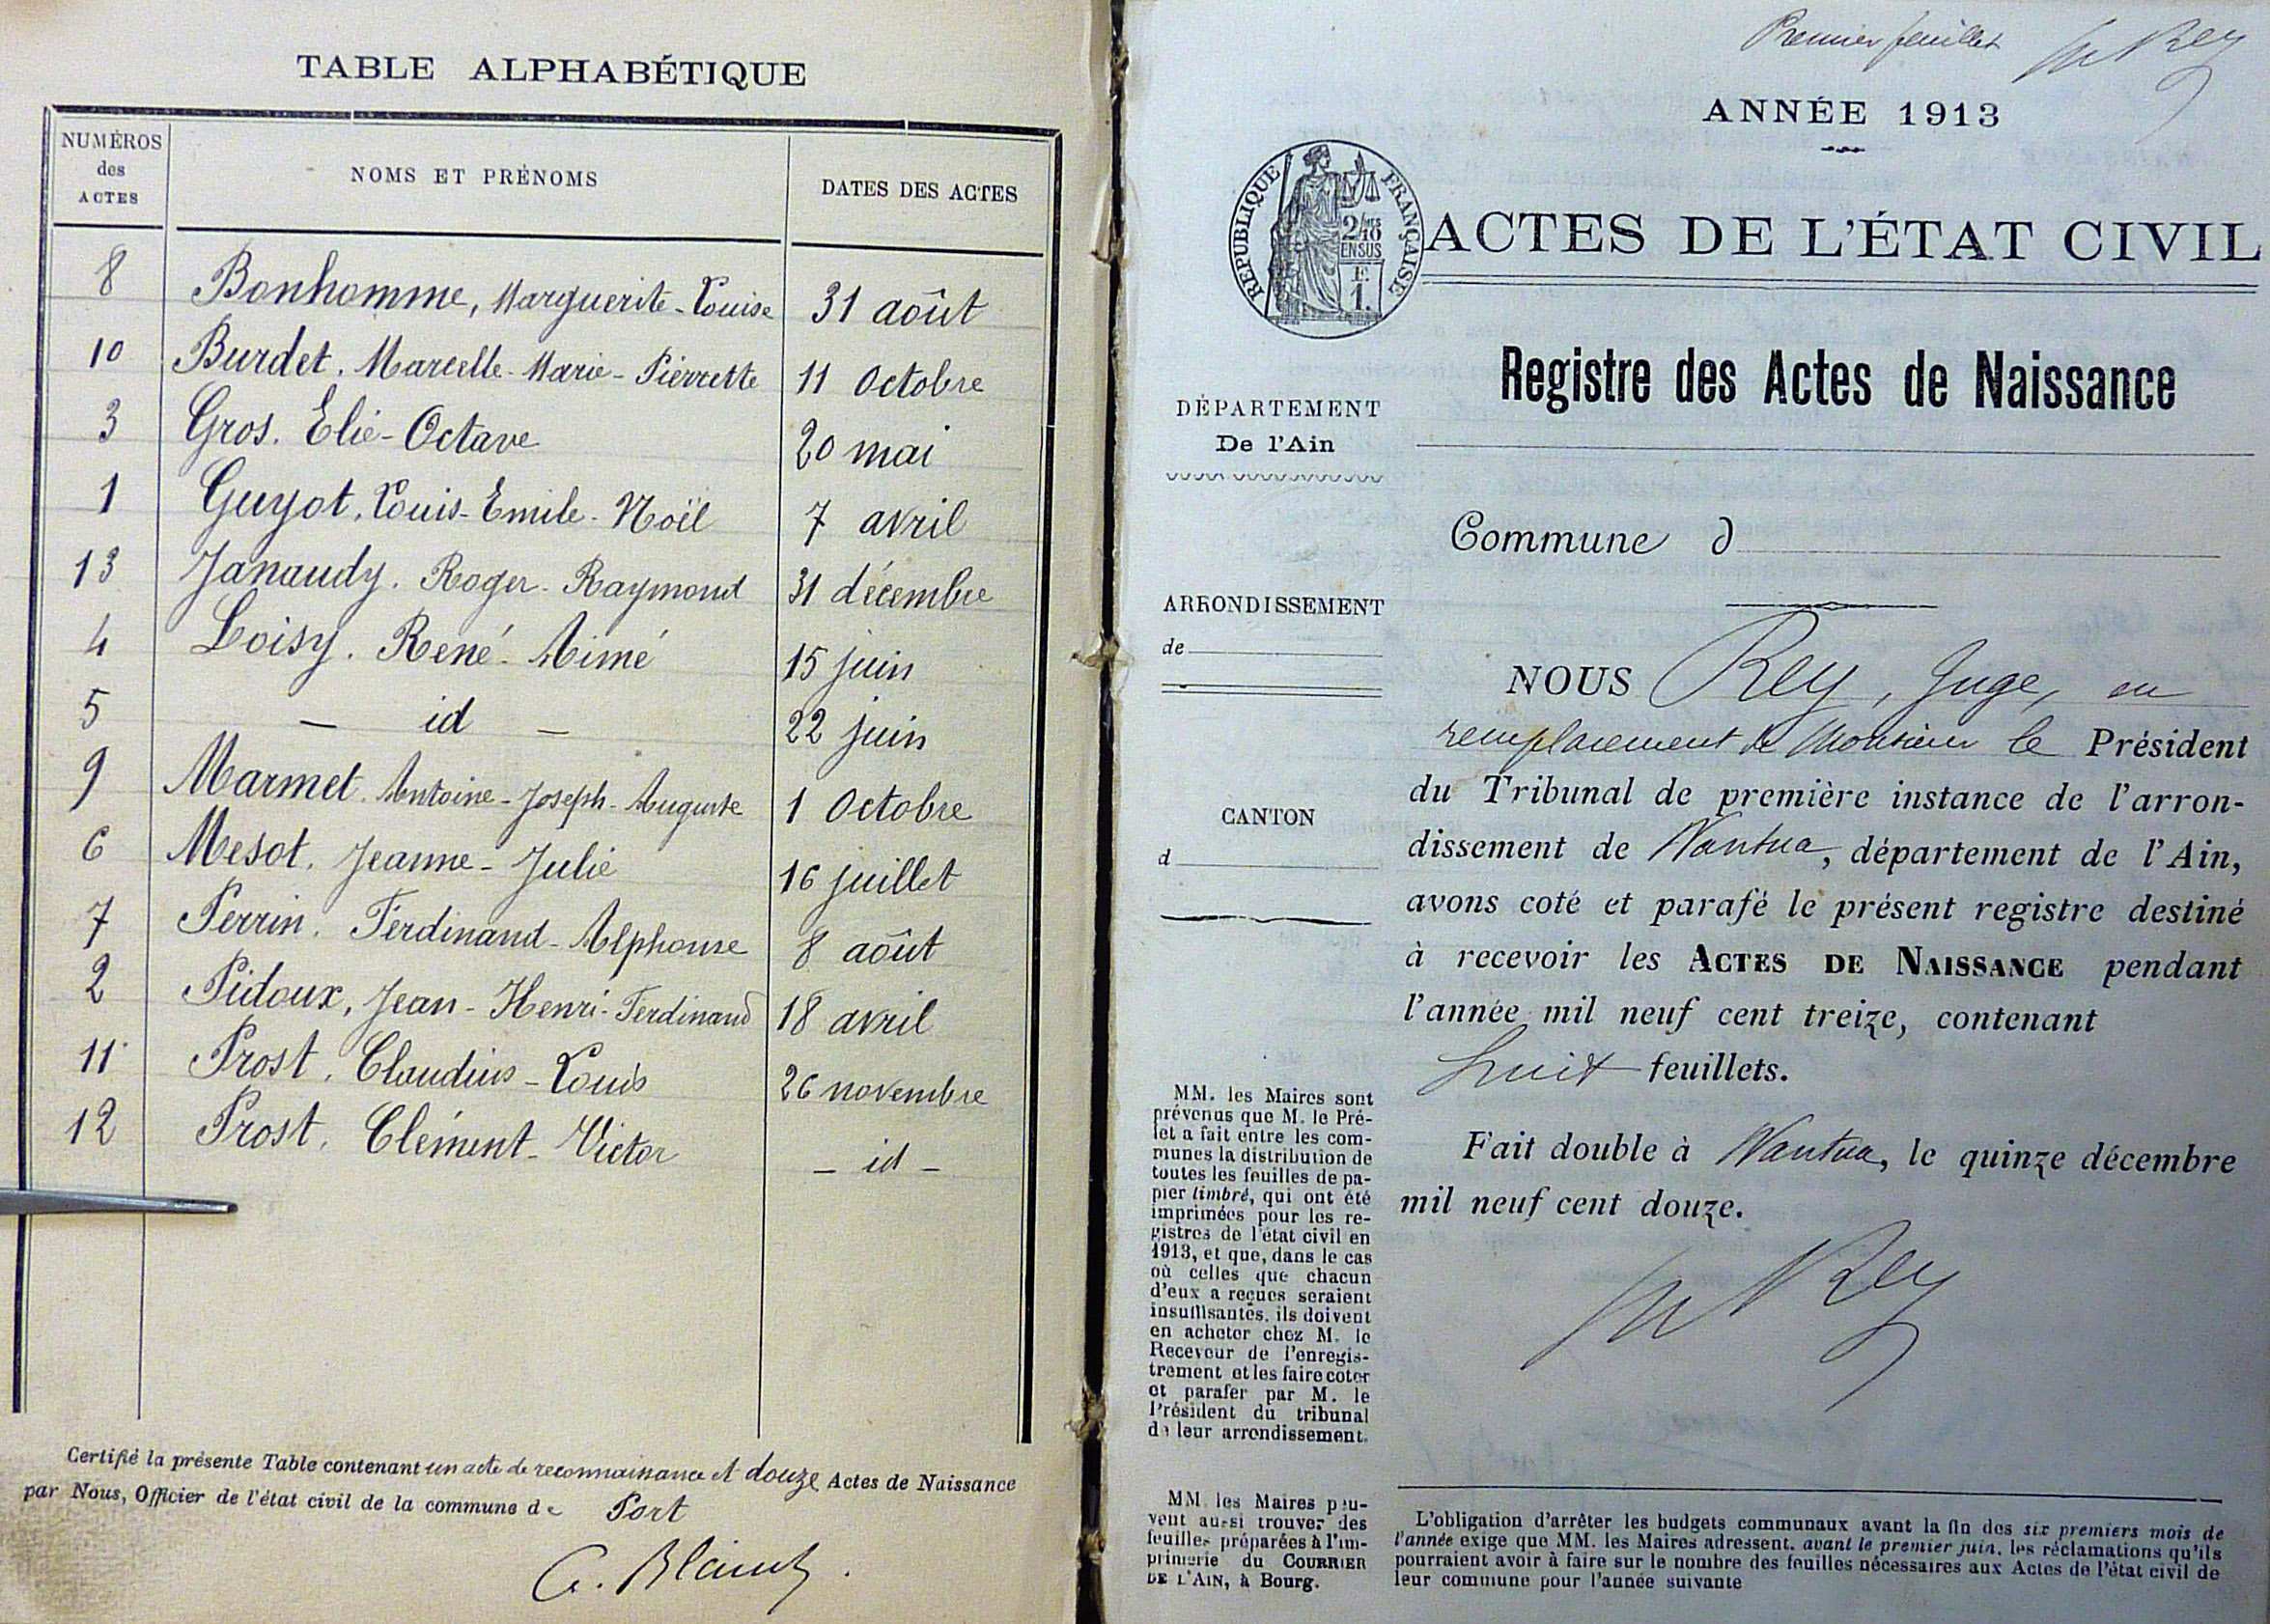 TABLE ALPHABÉTIQUE
NUMÉROS
des
ACTES
NOMS ET PRÉNOMS
DATES DES ACTES
8 Bonhomme, Marguerite-Louise 31 août
10 Burdet. Marcelle-Marie-Pierrette 11 Octobre
3 Gros. Elie-Octave 20 mai
1 Guyot, Louis-Emile-Noël 7 avril
13 Janaudy. Roger-Raymond 31 décembre
4 Loisy. René-Aimé 15 juin
5 — id — 22 juin
9 Marmet. Antoine-Joseph-Auguste 1 Octobre
6 Mesot. Jeanne-Julie 16 juillet
7 Perrin. Ferdinand-Alphonse 8 août
2 Pidoux, Jean-Henri-Ferdinand 18 avril
11 Prost, Claudius-Louis 26 novembre
12 Prost, Clément-Victor — id —
Certifié la présente Table contenant un acte de reconnaissance et douze Actes de Naissance
par Nous, Officier de l'état civil de la commune de Port
Premier feuillet Rey
ANNÉE 1913
RÉPUBLIQUE FRANÇAISE
2/10
EN SUS
1.
ACTES DE L'ÉTAT CIVIL
Registre des Actes de Naissance
DÉPARTEMENT
De l'Ain
Commune d
ARRONDISSEMENT
de
CANTON
d
NOUS Rey, Juge, en
remplacement de Monsieur le Président
du Tribunal de première instance de l'arron-
dissement de Nantua, département de l'Ain,
avons coté et parafé le présent registre destiné
à recevoir les ACTES DE NAISSANCE pendant
l'année mil neuf cent treize, contenant
huit feuillets.
Fait double à Nantua, le quinze décembre
mil neuf cent douze.
Rey
MM. les Maires sont
prévenus que M. le Pré-
fet a fait entre les com-
munes la distribution de
toutes les feuilles de pa-
pier timbré, qui ont été
imprimées pour les re-
gistres de l'état civil en
1913, et que, dans le cas
où celles que chacun
d'eux a reçues seraient
insuffisantes, ils doivent
en acheter chez M. le
Receveur de l'enregis-
trement et les faire coter
et parafer par M. le
Président du tribunal
de leur arrondissement.
MM. les Maires peu-
vent aussi trouver des
feuilles préparées à l'im-
primerie du COURRIER
DE L'AIN, à Bourg.
L'obligation d'arrêter les budgets communaux avant la fin des six premiers mois de
l'année exige que MM. les Maires adressent, avant le premier juin, les réclamations qu'ils
pourraient avoir à faire sur le nombre des feuilles nécessaires aux Actes de l'état civil de
leur commune pour l'année suivante